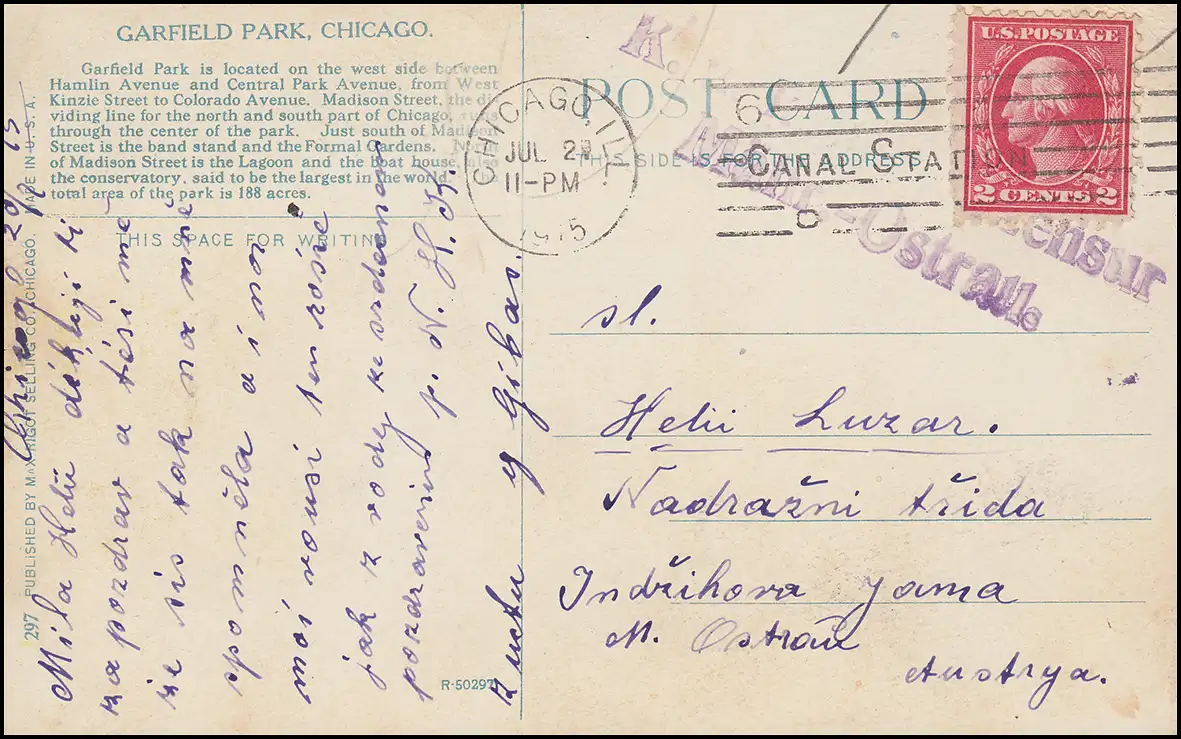 GARFIELD PARK, CHICAGO.
Garfield Park is located on the west side between
Hamlin Avenue and Central Park Avenue, from West
Kinzie Street to Colorado Avenue. Madison Street, the di-
viding line for the north and south part of Chicago, runs
through the center of the park. Just south of Madison
Street is the band stand and the Formal Gardens. North
of Madison Street is the Lagoon and the boat house, also
the conservatory, said to be the largest in the world. The
total area of the park is 188 acres.
THIS SPACE FOR WRITING
297 PUBLISHED BY MAX RIGOT SELLING CO., CHICAGO. MADE IN U.S.A.
R-50297
Chicago 29/7 15
Mila Helii děkuji ti
za pozdrav a těsi mě
že sis tak na mne
spomněla a
jak z vody ze srdcem
pozdravení p. N. H. K.
z uctu y Gibas.
POST CARD
THIS SIDE IS FOR THE ADDRESS
CHICAGO, ILL.
JUL 29
11-PM
1915
6
CANAL STATION
U.S. POSTAGE
2 CENTS 2
K.
Zensur
Ostrau.
sl.
Helii Luzar.
Nadražni třida
Indřihova Jama
M. Ostrau
Austrya.